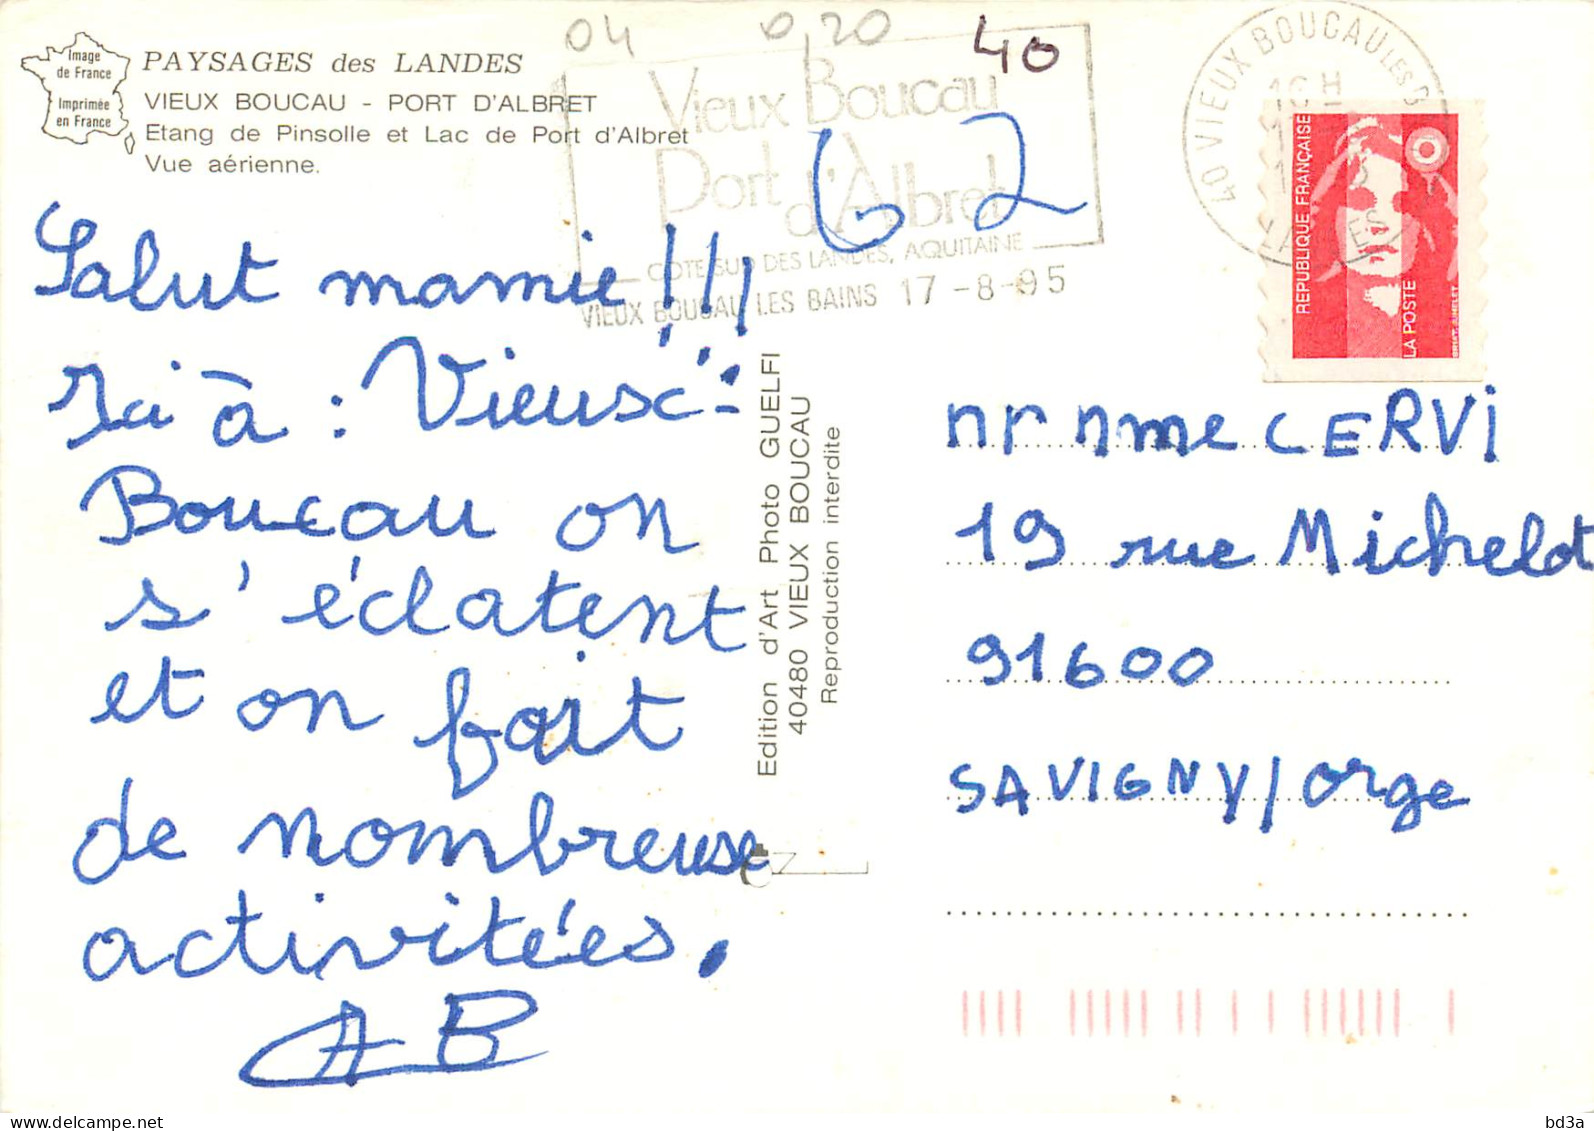 Image
de France
Imprimée
en France
PAYSAGES des LANDES
VIEUX BOUCAU - PORT D'ALBRET
Etang de Pinsolle et Lac de Port d'Albret
Vue aérienne.
04
0,20
40
62
Vieux Boucau
Port d'Albret
COTE SUD DES LANDES, AQUITAINE
VIEUX BOUCAU LES BAINS 17-8-95
40 VIEUX BOUCAU LES B
16 H
LANDES
REPUBLIQUE FRANÇAISE
LA POSTE
Salut mamie !!!
Ici à : Vieux-
Boucau on
s'éclatent
et on fait
de nombreuse
activitées.
AB
Edition d'Art Photo GUELFI
40480 VIEUX BOUCAU
Reproduction interdite
mr mme CERVI
19 rue Michelot
91600
SAVIGNY/orge
bd3a